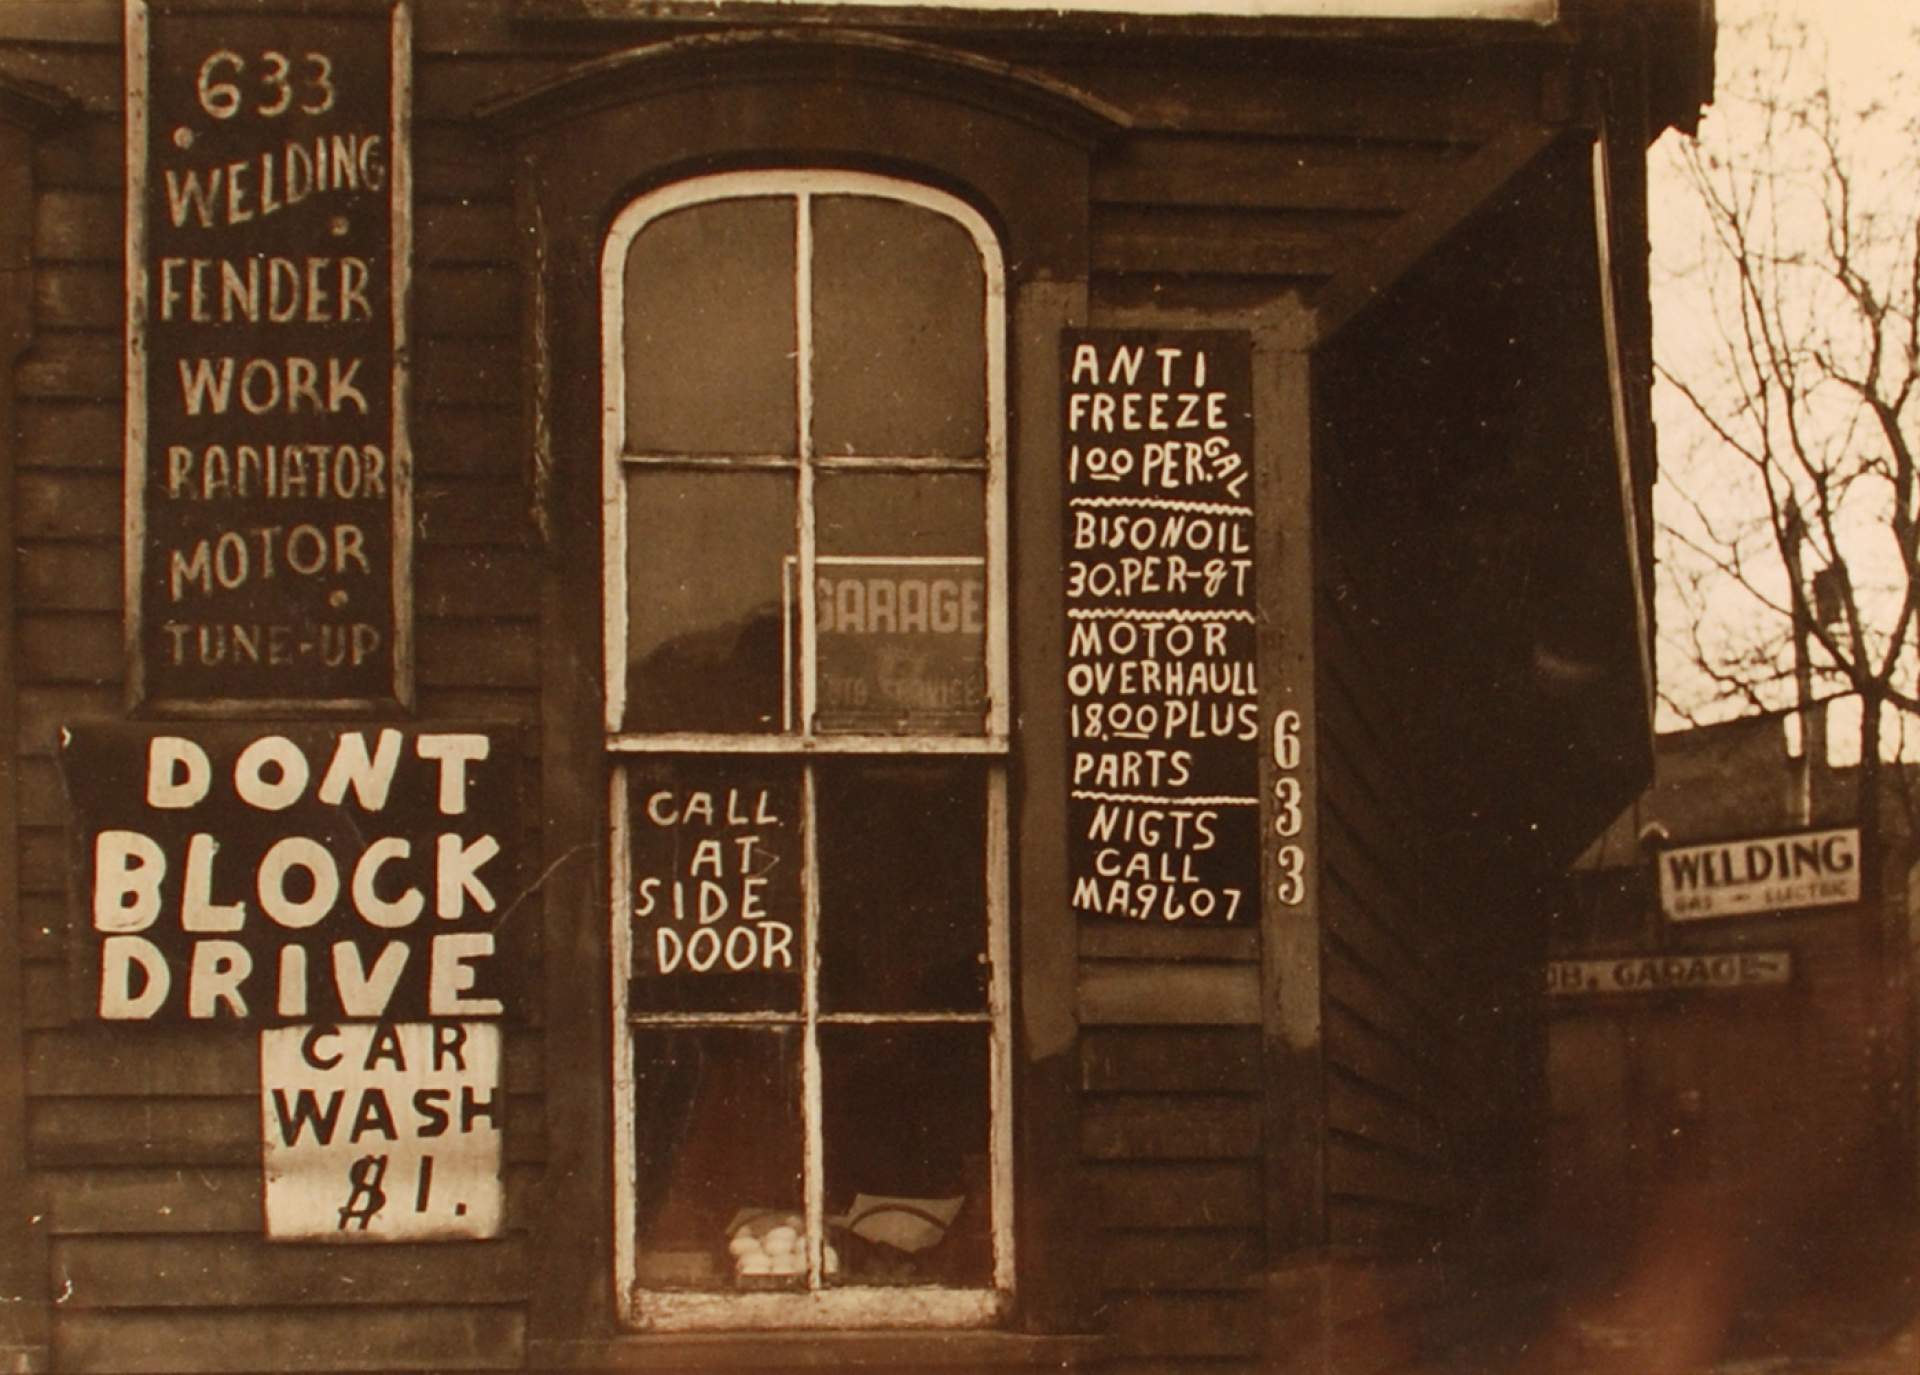 633
WELDING
FENDER
WORK
RADIATOR
MOTOR
TUNE-UP
DONT
BLOCK
DRIVE
CAR
WASH
$1.
GARAGE
CALL
AT
SIDE
DOOR
ANTI
FREEZE
1.00 PER. GAL
BISON OIL
30. PER-QT
MOTOR
OVERHAULL
18.00 PLUS
PARTS
NIGTS
CALL
MA.9607
633
WELDING
GAS - ELECTRIC
GARAGE